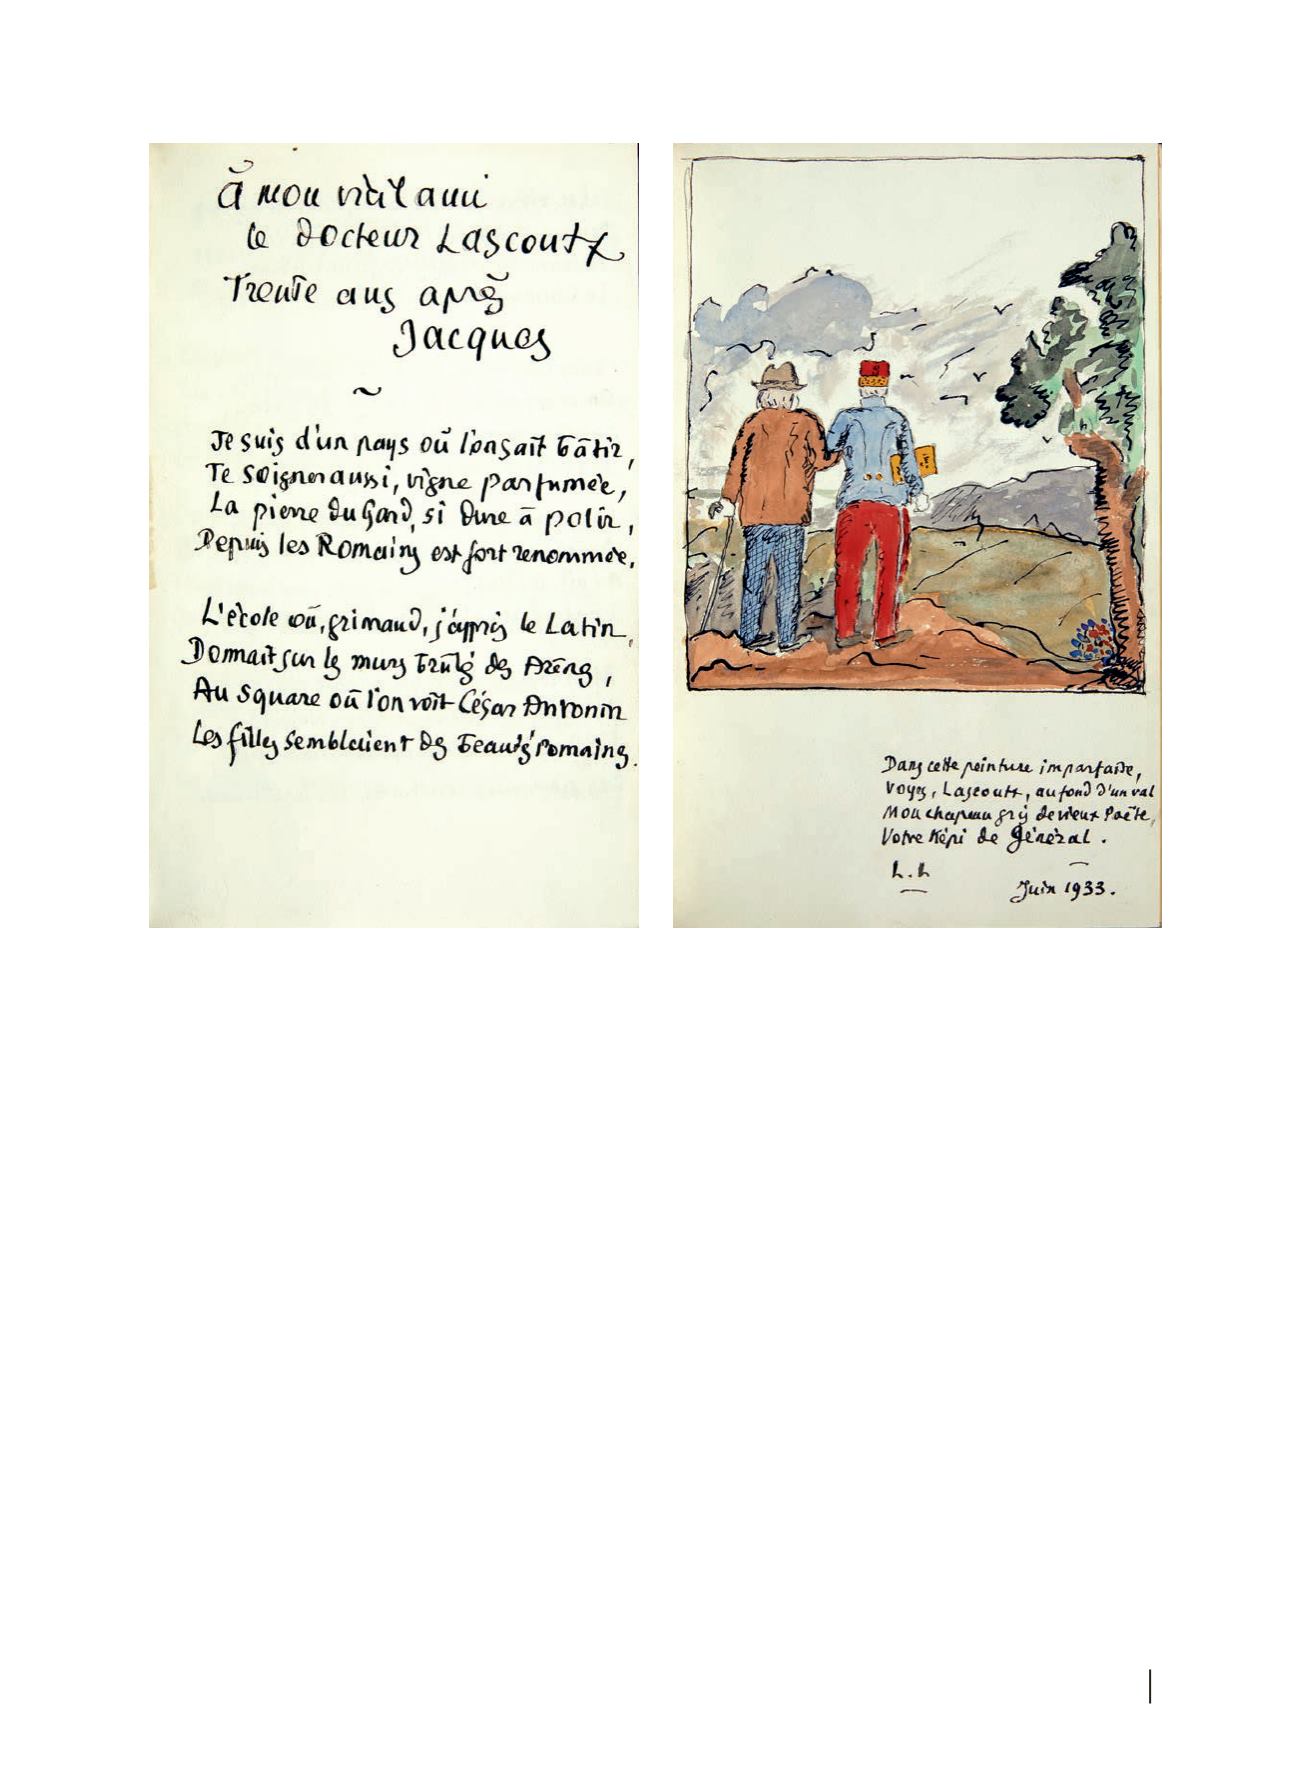 à mon vieil ami
le docteur Lascoutx
Trente ans après
Jacques
~
Je suis d'un pays où l'on sait bâtir,
Te soigner aussi, vigne parfumée,
La pierre du Gard, si dure à polir,
Depuis les Romains est fort renommée.
L'école où, grimaud, j'appris le Latin,
Dormait sur les murs brûlés des Arènes,
Au square où l'on voit César Antonin
Les filles semblaient des beautés romaines.
Dans cette peinture imparfaite,
Voyez, Lascoutx, au fond d'un val
Mon chapeau gris de vieux Poète,
Votre Képi de Général.
L. L
Juin 1933.